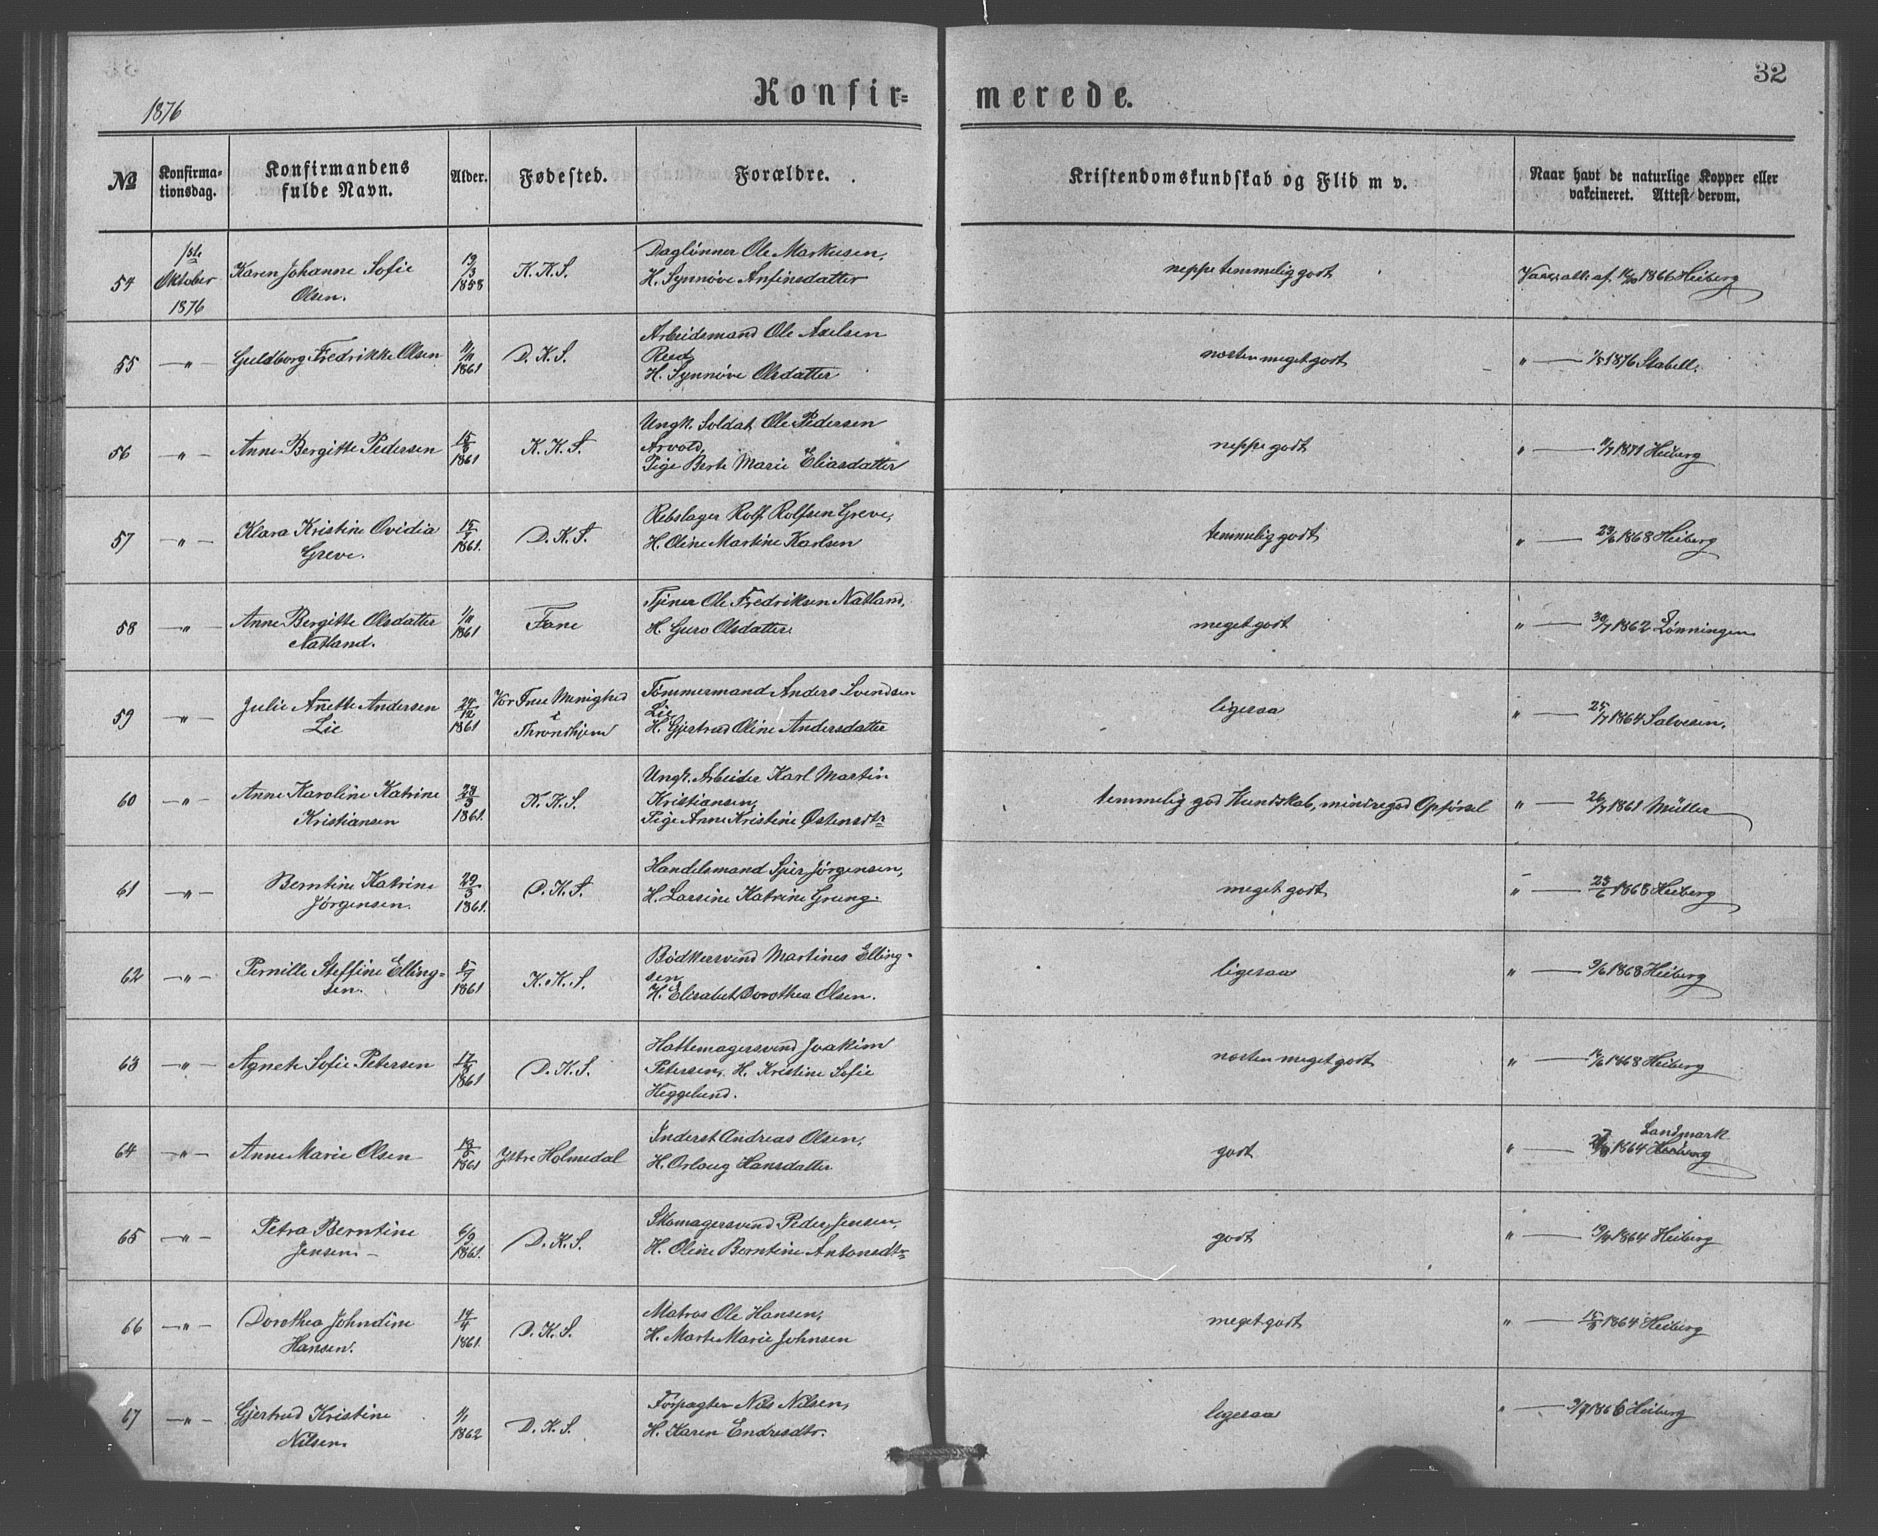 32
1876
Konfir=
merede.
No
Konfirma-
tionsdag.
Konfirmandens
fulde Navn.
Alder.
Fødested.
Forældre.
Kristendomskundskab og Flid m v.
Naar havt de naturlige Kopper eller
vakcineret. Attest derom.
54
1ste
Oktober
1876
Karen Johanne Sofie
Olsen.
19/3
1858
K. K. S.
Daglønner Ole Markusen,
H. Synnøve Anfinsdatter
neppe temmelig godt
af 1866 Heiberg
55
—"—
Guldborg Fredrikke Olsen
11/11
1861
D. K. S.
Arbeidsmand Ole Axelsen
H. Synnøve Olsdatter
næsten meget godt
" — 1876 Stabell.
56
—"—
Anne Bergitte Pedersen
1861
K. K. S.
Ungk. Soldat Ole Pedersen
Arvold,
Pige Berte Marie Eliasdatter
neppe godt
" — 1871 Heiberg
57
—"—
Klara Kristine Ovidia
Greve.
1861.
D. K. S.
Rebslager Rolf Rolfsen Greve,
H. Oline Martine Karlsen
temmelig godt
" — 23/6 1868 Heiberg
58
—"—
Anne Bergitte Olsdatter
Natland.
1/11
1861
Fane
Tjener Ole Fredriksen Natland,
H. Guro Olsdatter.
meget godt
" — 30/7 1862 Lønningen
59
—"—
Julie Anette Andersen
Lie
24/12
1861
Vor Frue Menighed
i
Throndhjem
Tømmermand Anders Svendsen
Lie,
H. Gjertrud Oline Andersdatter
ligesaa
" — 25/7 1864 Salvesen,
60
—"—
Anne Karoline Katrine
Kristiansen
1861.
K. K. S.
Ungk. Arbeider Karl Martin
Kristiansen,
Pige Anne Kristine Østensdtr
temmelig god Kundskab, mindre god Opførsel
" — 26/7 1861 Müller
61
—"—
Berntine Katrine
Jørgensen.
29/3
1861.
D. K. S.
Handelsmand Sjur Jørgensen,
H. Lassine Katrine Grung.
meget godt
" — 23/6 1868 Heiberg
62
—"—
Pernille Steffine Elling-
sen.
5/7
1861
K. K. S.
Bødkersvend Martines Elling-
sen,
H. Elisabet Dorothea Olsen.
ligesaa
" — 9/6 1868 Heiberg
63
—"—
Agnete Sofie Petersen
1861
D. K. S.
Hattemagersvend Joakim
Petersen, H. Kristine Sofie
Heggelund.
næsten meget godt
" — 1868 Heiberg
64
—"—
Anne Marie Olsen
1861
Ytre Holmedal
Inderst Andreas Olsen,
H. Orlaug Hansdatter
godt
Landmark
" — 1864 Heiberg
65
—"—
Petra Berntine
Jensen.
6/9
1861.
D. K. S.
Skomagersvend Peder Jensen,
H. Oline Berntine Antonsdtr
godt
" — 1864 Heiberg
66
—"—
Dorothea Johndine
Hansen.
14/4
1861.
D. K. S.
Matros Ole Hansen,
H. Marte Marie Johnsen
meget godt
" — 1864 Heiberg
67
—"—
Gjertrud Kristine
Nilsen.
1/1
1862
D. K. S.
Forpagter Nils Nilsen,
H. Karen Endresdtr.
ligesaa
" — 9/7 1866 Heiberg